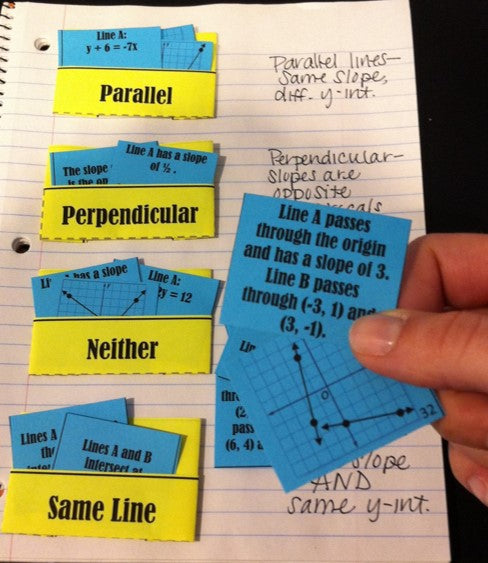 Line A:
y + 6 = -7x
Parallel
Parallel lines—
same slope,
diff. y-int.
The slope
is the op
Line A has a slope
of ½ .
Perpendicular
Perpendicular—
slopes are
opposite
Line A passes
through the origin
and has a slope of 3.
Line B passes
through (-3, 1) and
(3, -1).
has a slope
Line A:
y = 12
Neither
O
32
(2,
pass
(6, 4)
Lines A
Lines A and B
intersect at
Same Line
slope
AND
same y-int.